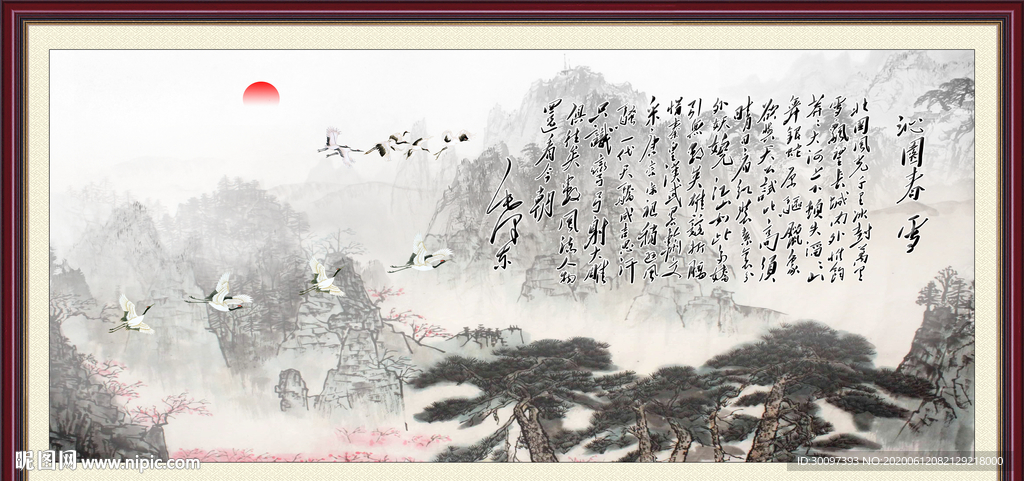 沁園春 雪
北国風光千里冰封萬里
雪飘望長城内外惟餘
莽莽大河上下頓失滔滔山
舞銀蛇原馳蠟象
欲與天公試比高須
晴日看红装素裹分
外妖娆江山如此多嬌
引無數英雄競折腰
惜秦皇漢武略輸文
采唐宗宋祖稍遜風
騷一代天驕成吉思汗
只識彎弓射大雕
俱往矣數風流人物
還看今朝
毛澤东
昵图网 www.nipic.com
ID:30097393 NO:20200612082129218000